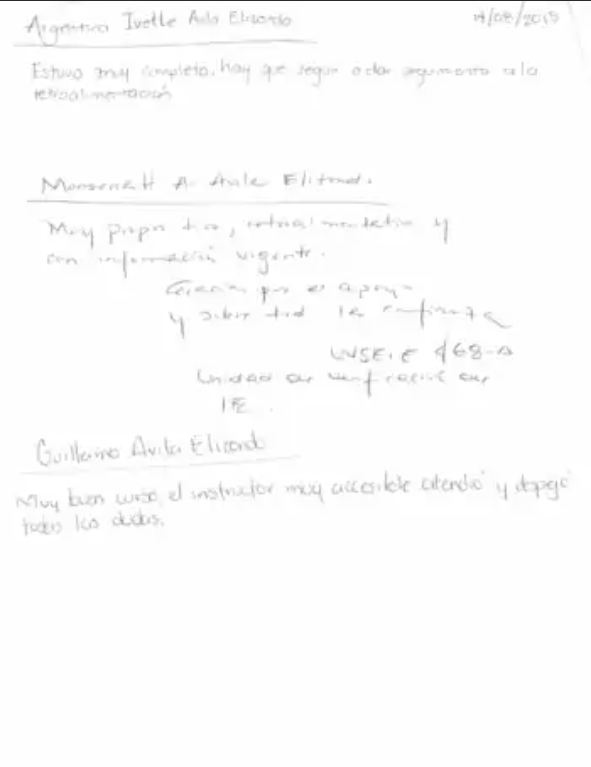 Argentina Ivette Avila Elizondo
/08/2015
Estuvo muy completo, hay que seguir a dar argumento a la
retroalimentación
Monserratt A. Avila Elizondo.
Muy propositiva, retroalimentativa y
con información vigente.
Gracias por el apoyo
y sobre todo la confianza
UVSEIE 468-A
Unidad de verificación de
IE.
Guillermo Avila Elizondo
Muy buen curso, el instructor muy accesible atendió y despejó
todas las dudas.